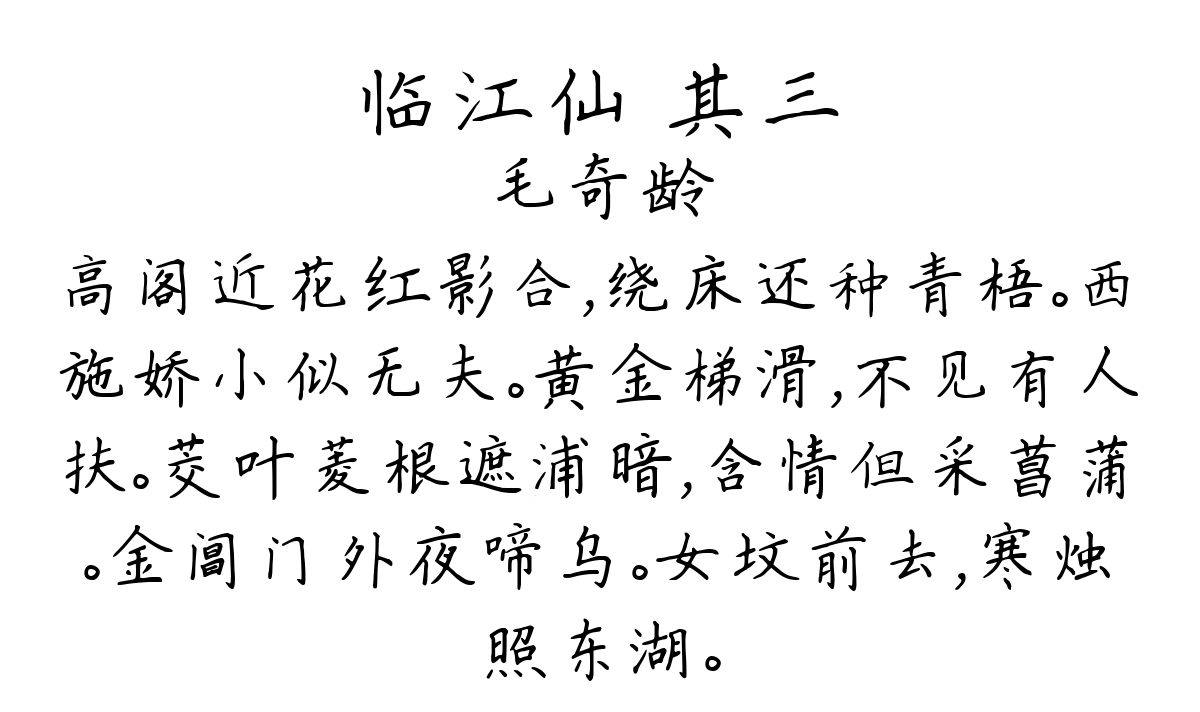 临江仙 其三
毛奇龄
高阁近花红影合,绕床还种青梧。西
施娇小似无夫。黄金梯滑,不见有人
扶。茭叶菱根遮浦暗,含情但采菖蒲
。金阊门外夜啼乌。女坟前去,寒烛
照东湖。